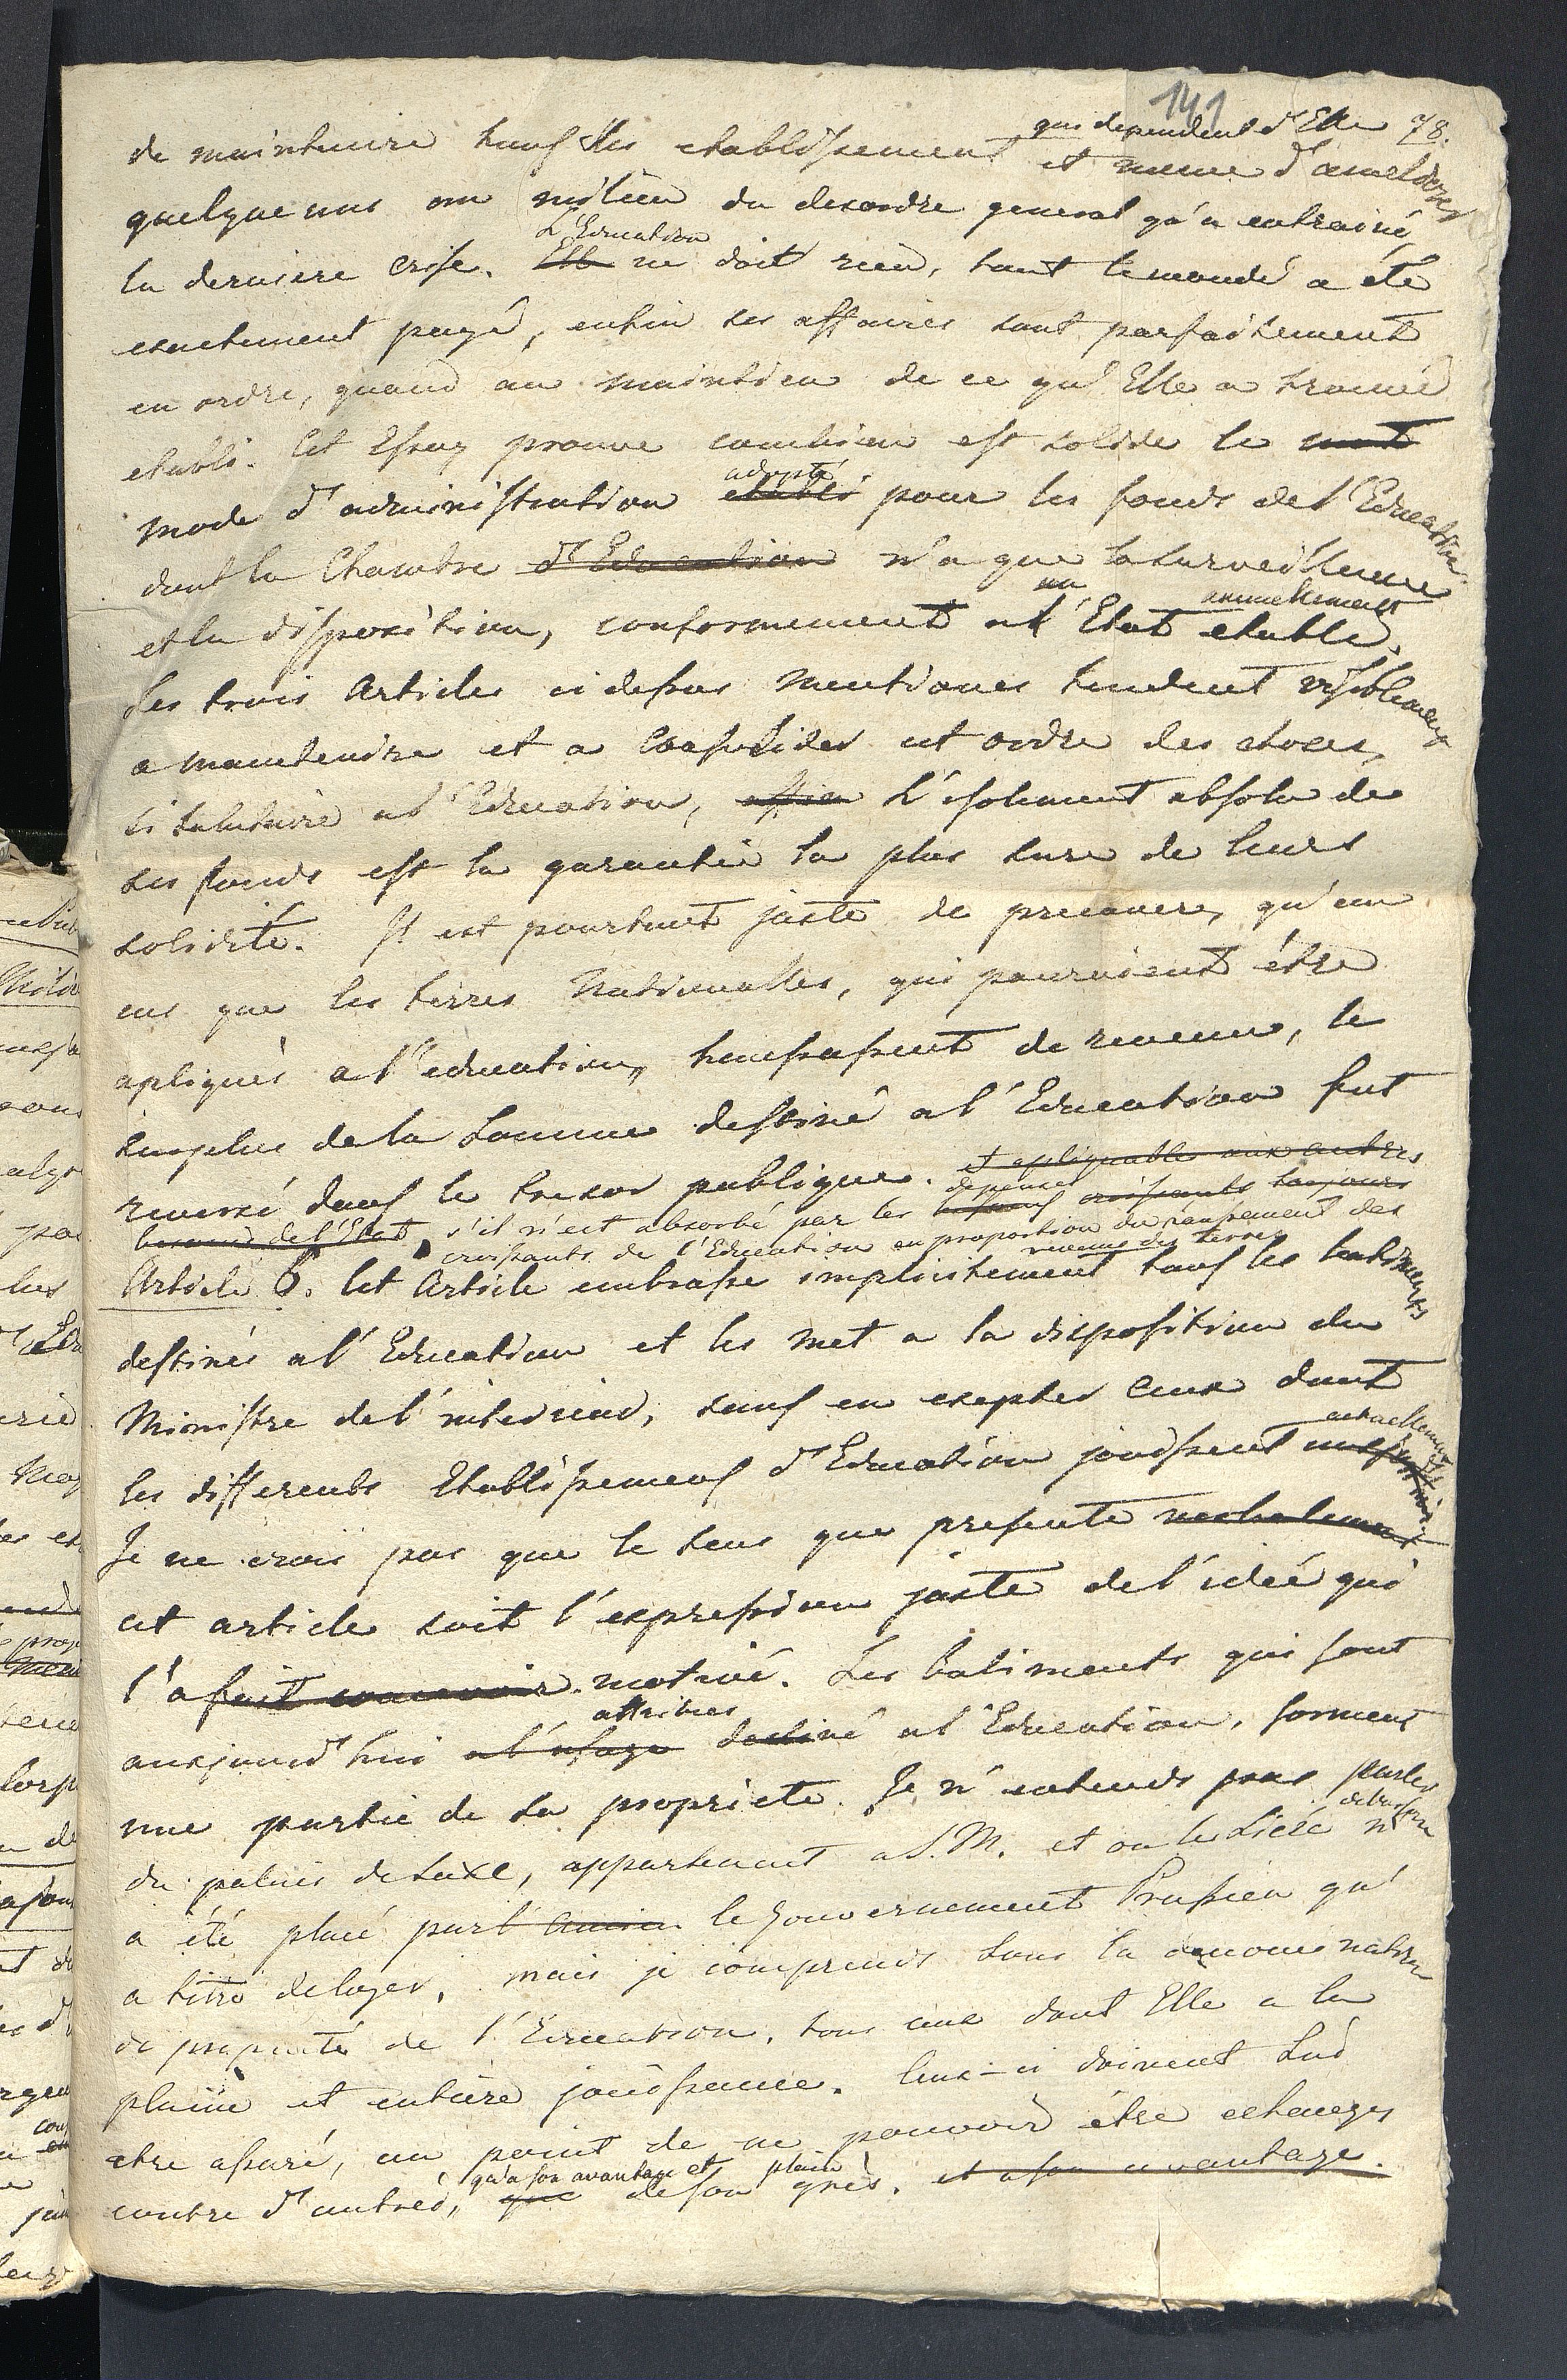 141
qui dependent d'Elle 78.
de maintenire tous les etablissement et meme d'ameliorer
quelques uns au milieu du desordre general qu'a entrainé
L'Education
la derniere crise. Elle ne doit rien, tout le monde a été
exactement payé, enfin ses affaires sont parfaitement
en ordre, quand au maintien de ce qu'Elle a trouvé
etabli. Cet Essay prouve combien est solide le mot
adopté
mode d'administration etabli pour les fonds de l'Education
dont la Chambre d'Education n'a que la surveillance
un annuellement
et la disposition, conformement a l'Etat etabli.
Les trois Articles ci dessus mentionés tendent visiblement
a maintenire et a Consolider cet ordre des choses,
si salutaire a l'Education, affin L'isolement absolu de
ses fonds est la garantie la plus sure de leurs
solidité. Il est pourtant juste de prevenir, qu'en
cas que les terres Nationalles, qui pouroient être
apliqués a l'education, haussassent de revenu, le
surplus de la Somme destiné a l'Education fut
reversé dans le tresor publique. et apliquable aux autres
depenses
besoins de l'Etat, s'il n'est absorbé par les besoins croissants toujours
croissants de l'Education en proportion du haussement des
revenus des terres
Article 6. Cet Article embrasse implicitement tous les batiments
destinés a l'Education et les met a la disposition du
Ministre de l'interieur, sans en excepter Ceux dont
actuellement
les differents Etablissemens d'Education jouissent
Je ne crois pas que le sens que presente
cet article soit l'expression juste de l'ideé qui
l'a fait concevoir motivé. Les batiments qui sont
attribués
aujourd'hui a l'usage destiné a l'Education, forment
une partie de sa proprieté. Je n'entends pas parler
du palais de Saxe, appartenant a S.M. et ou le Licée n'
a été placé par l'ancien le Gouvernement Prussien qu'
a titre de loyer, mais je comprends sous la denomination
de proprieté de l'Education, tous ceux dont Elle a la
plaine et entiere jouissance. Ceux-ci doivent Lui
etre assuré, au point de ne pouvoir être echangés
qu'a son avantage et plein
contre d'autres, que de son grés. et a son avantage.